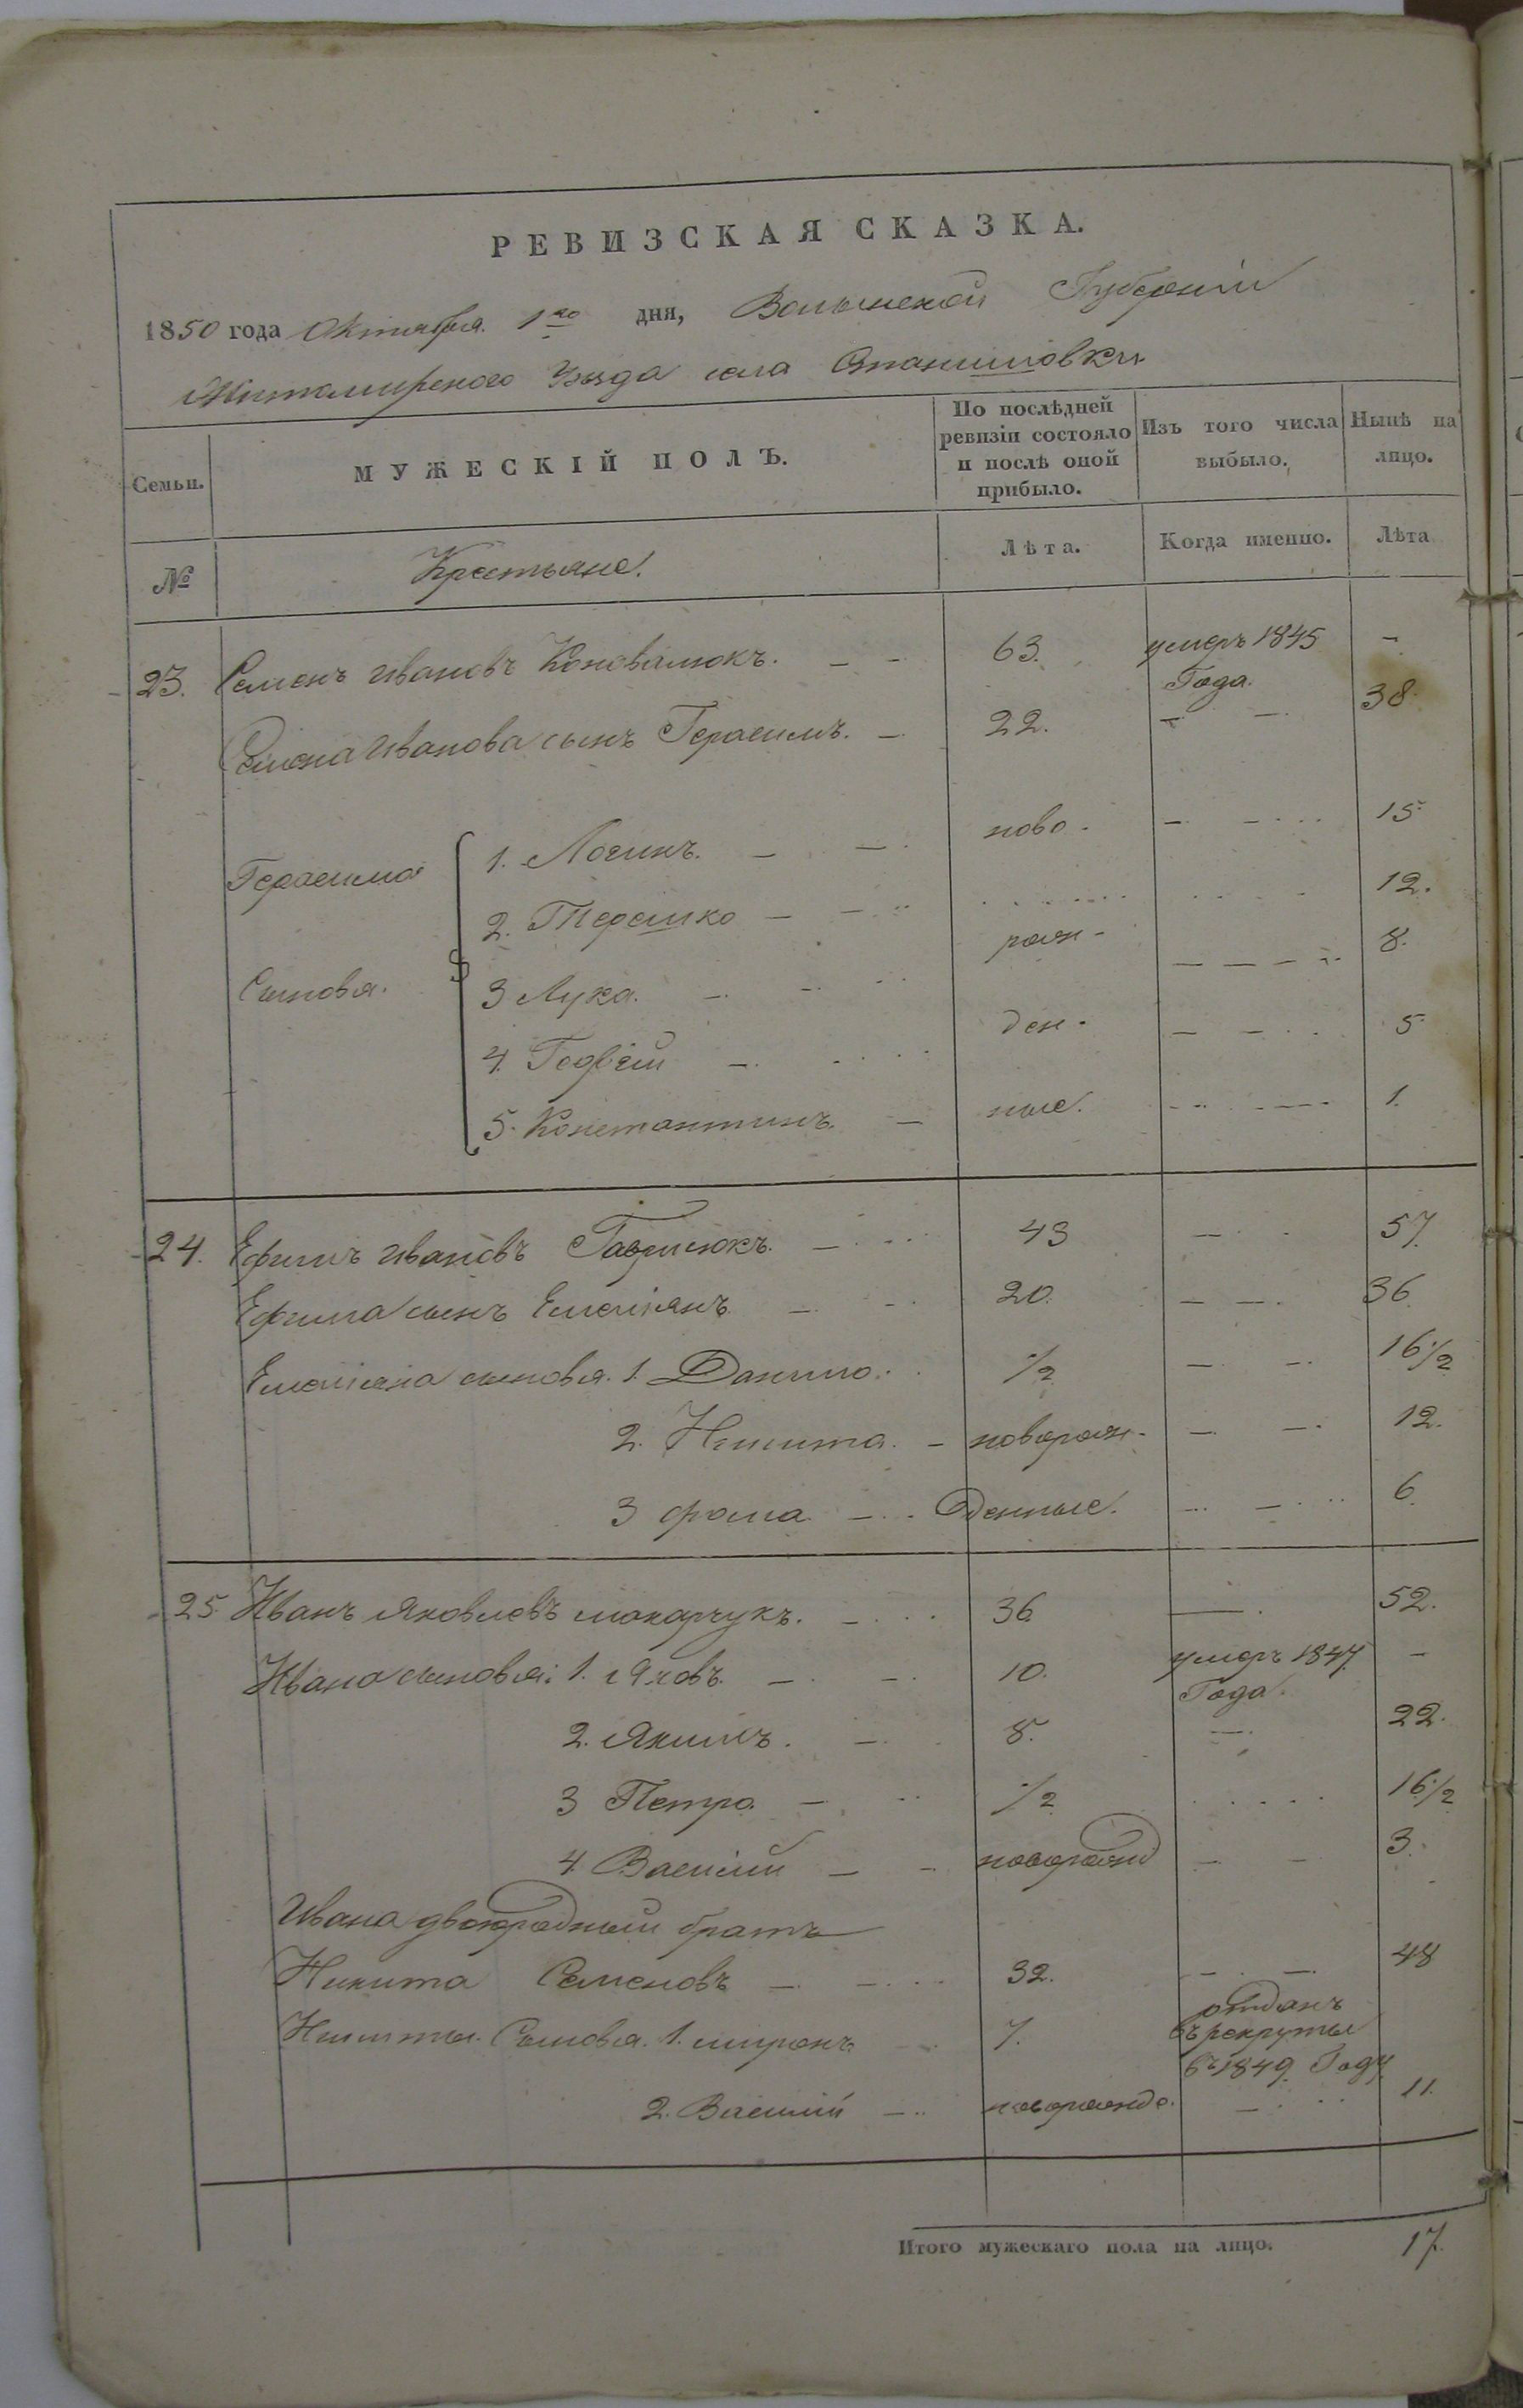 РЕВИЗСКАЯ СКАЗКА.
1850 года Октября 1го дня, Волынской Губерніи
Житомирского Уезда села Степанишовки
Семьи.
МУЖЕСКІЙ ПОЛЪ.
По послѣдней ревизіи состояло и послѣ оной прибыло.
Изъ того числа выбыло.
Нынѣ на лицо.
№
Крестьяне.
Лѣта.
Когда именно.
Лѣта
23. Семенъ Ивановъ Коновалюкъ. — - 63. умеръ 1845 Года. -
Семена Иванова сынъ Герасимъ. — 22. — — 38.
Герасима 1. Логинъ. — — ново- — — 15
2. Терешко — — — 12.
рож-
Сыновья. 3 Лука. — — — — — 8.
4. Гордѣй — ден- — — 5
5. Константинъ. — ные. — — 1.
24. Ефимъ Ивановъ Гаврилюкъ. — 43 — 57.
Ефима сынъ Емелiянъ — - 20. — — 36
Емелiяна сыновья. 1. Данило. 1/2 — — 16 1/2
2. Никита. — новорож- — — 12.
3 фома — денные. — — 6.
25. Иванъ Яковлевъ макарчукъ. — 36 — 52.
Ивана сыновья: 1. Яковъ. — - 10. умеръ 1847. Года. -
2. Якимъ. — 8. — 22.
3 Петро. — 1/2 16 1/2
4 Василий — - новорожд — - 3.
Ивана двоюродный братъ
Никита Семеновъ — — 32. — — 48
Никиты Сыновья. 1. миронъ 7. отданъ
въ рекруты
въ 1849. Году.
2. Василий — новорожде. — 11.
Итого мужескаго пола на лицо. 17.